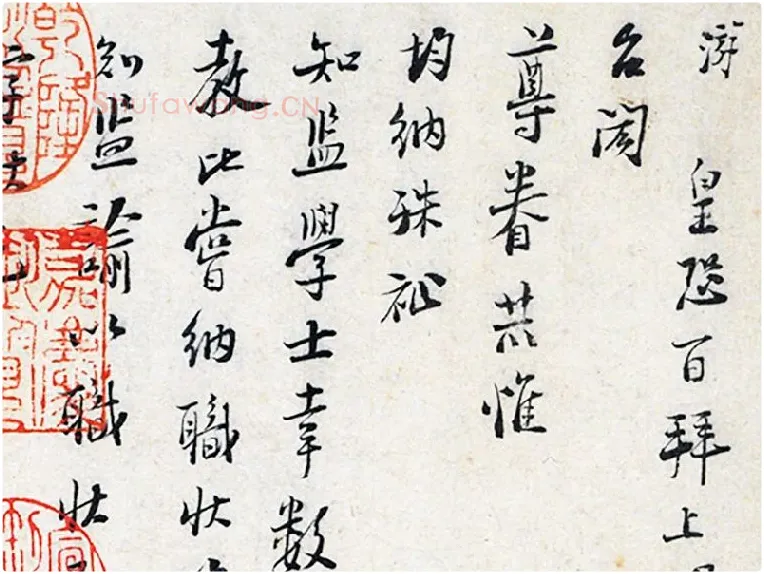 游 皇恐百拜上
台閤
尊眷共惟
均納殊祉
知監學士幸數
教比嘗納職狀
知監諭以職狀
Shufawang.CN